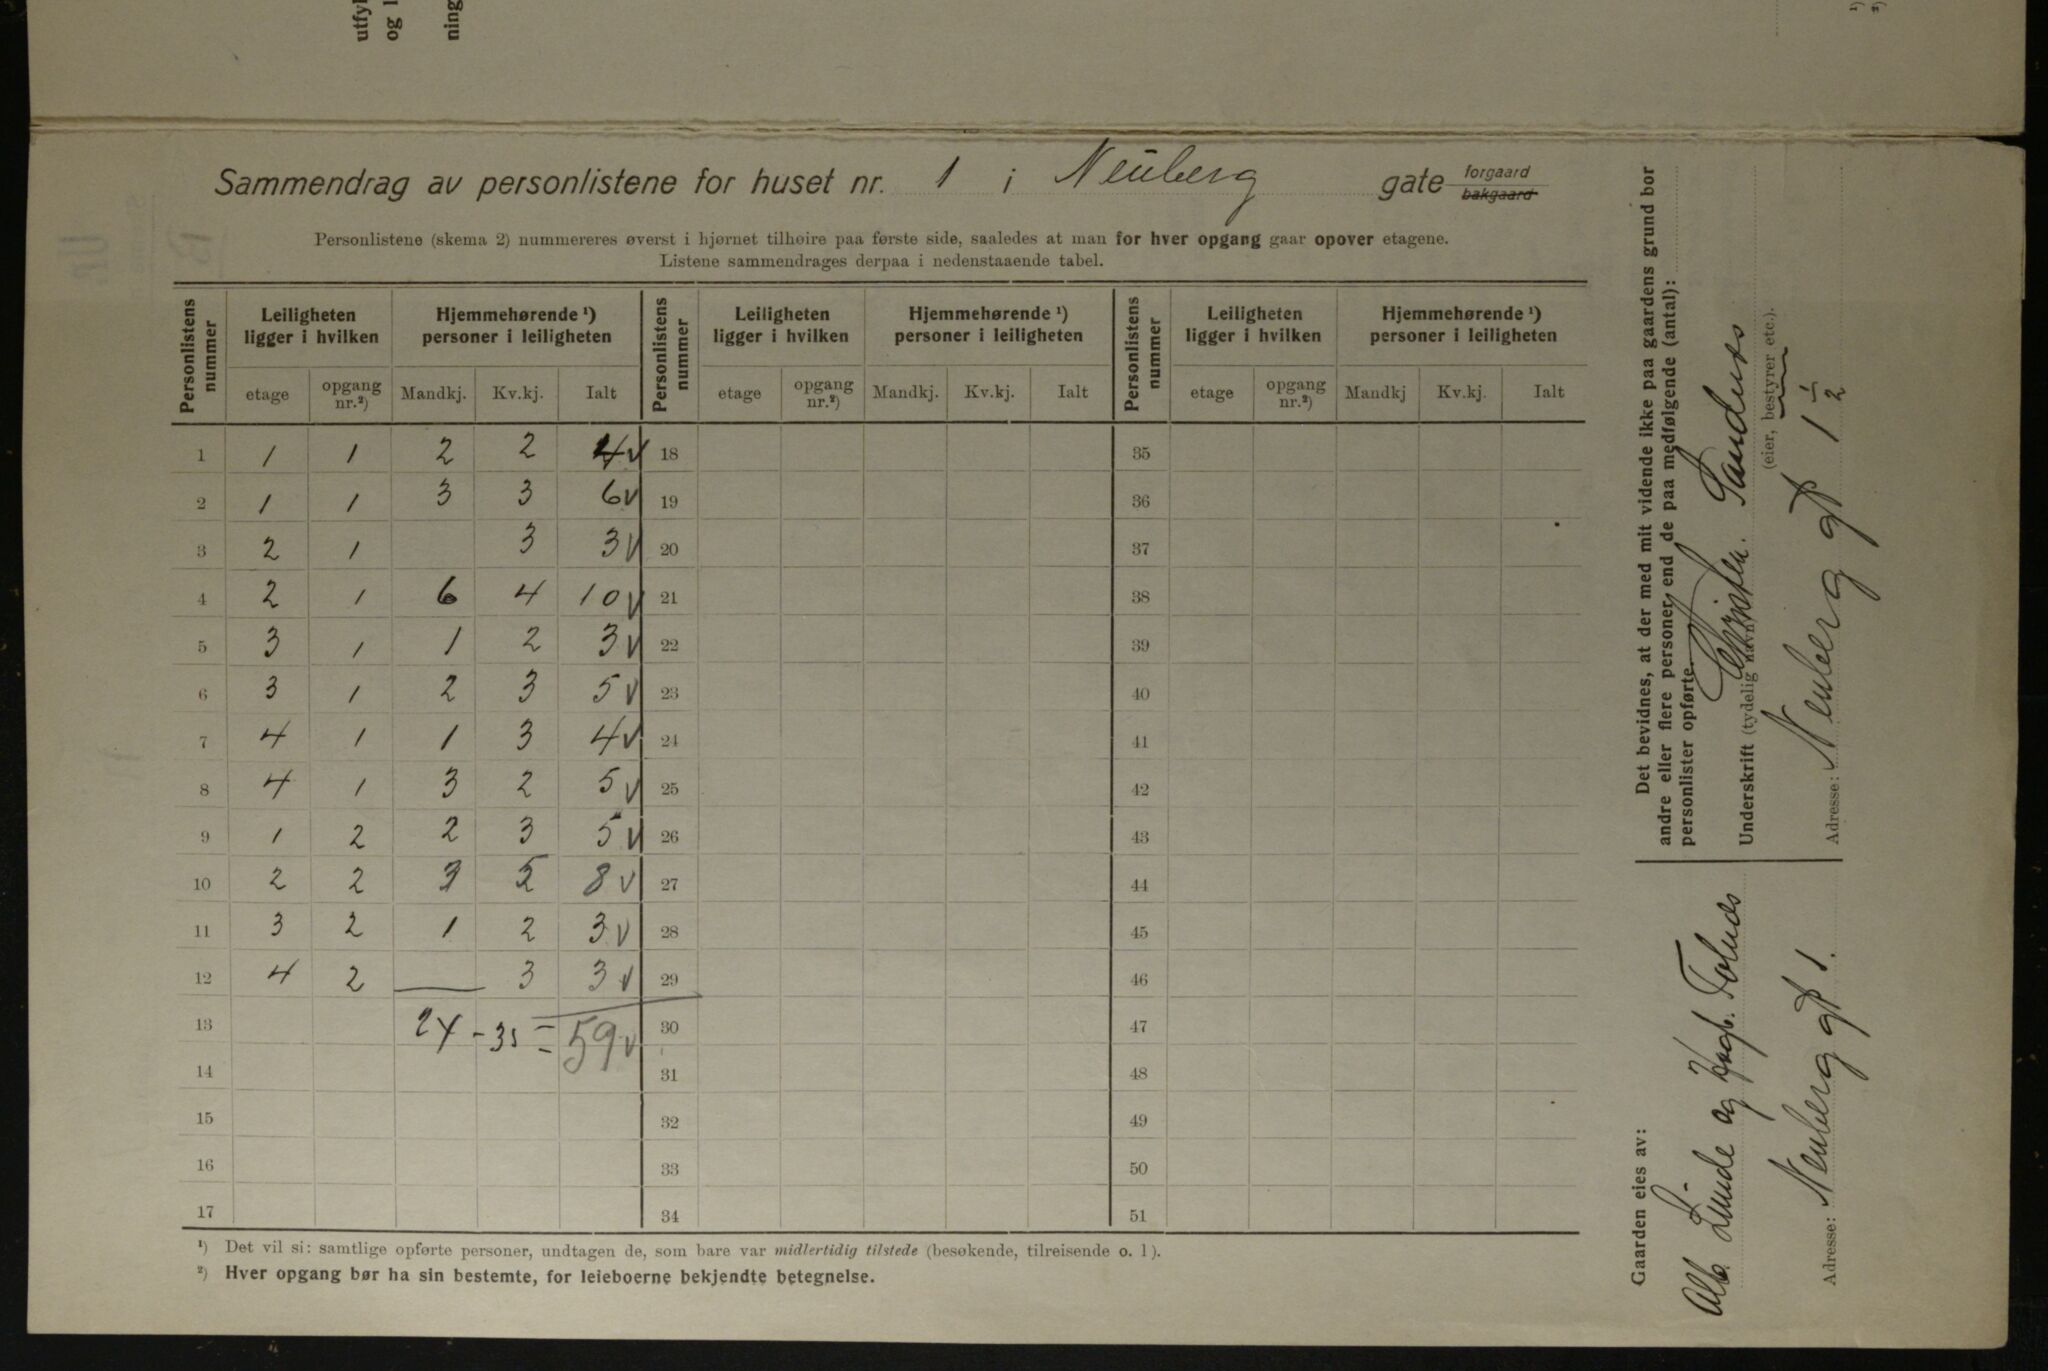 utfyl
og l
ning
Sammendrag av personlistene for huset nr. 1 i Neüberg gate forgaard
bakgaard
Personlistene (skema 2) nummereres øverst i hjørnet tilhøire paa første side, saaledes at man for hver opgang gaar opover etagene.
Listene sammendrages derpaa i nedenstaaende tabel.
Personlistens nummer | Leiligheten ligger i hvilken | Hjemmehørende ¹) personer i leiligheten | Personlistens nummer | Leiligheten ligger i hvilken | Hjemmehørende ¹) personer i leiligheten | Personlistens nummer | Leiligheten ligger i hvilken | Hjemmehørende ¹) personer i leiligheten
etage | opgang nr.²) | Mandkj. | Kv.kj. | Ialt | etage | opgang nr.²) | Mandkj. | Kv.kj. | Ialt | etage | opgang nr.²) | Mandkj | Kv.kj. | Ialt
1 1 1 2 2 4 v 18 35
2 1 1 3 3 6 v 19 36
3 2 1 3 3 v 20 37
4 2 1 6 4 10 v 21 38
5 3 1 1 2 3 v 22 39
6 3 1 2 3 5 v 23 40
7 4 1 1 3 4 v 24 41
8 4 1 3 2 5 v 25 42
9 1 2 2 3 5 v 26 43
10 2 2 3 5 8 v 27 44
11 3 2 1 2 3 v 28 45
12 4 2 — 3 3 v 29 46
13 24 - 35 = 59 v 30 47
14 31 48
15 32 49
16 33 50
17 34 51
¹) Det vil si: samtlige opførte personer, undtagen de, som bare var midlertidig tilstede (besøkende, tilreisende o. l).
²) Hver opgang bør ha sin bestemte, for leieboerne bekjendte betegnelse.
Det bevidnes, at der med mit vidende ikke paa gaardens grund bor
andre eller flere personer end de paa medfølgende (antal):
personlister opførte.
Christen. Sandnæs
Underskrift (tydelig navn):
(eier, bestyrer etc.).
Adresse: Neuberg gt 1 1/2
Gaarden eies av:
Alb. Lünde og Hagb. Tolnæs
Adresse: Neuberg gt 1.